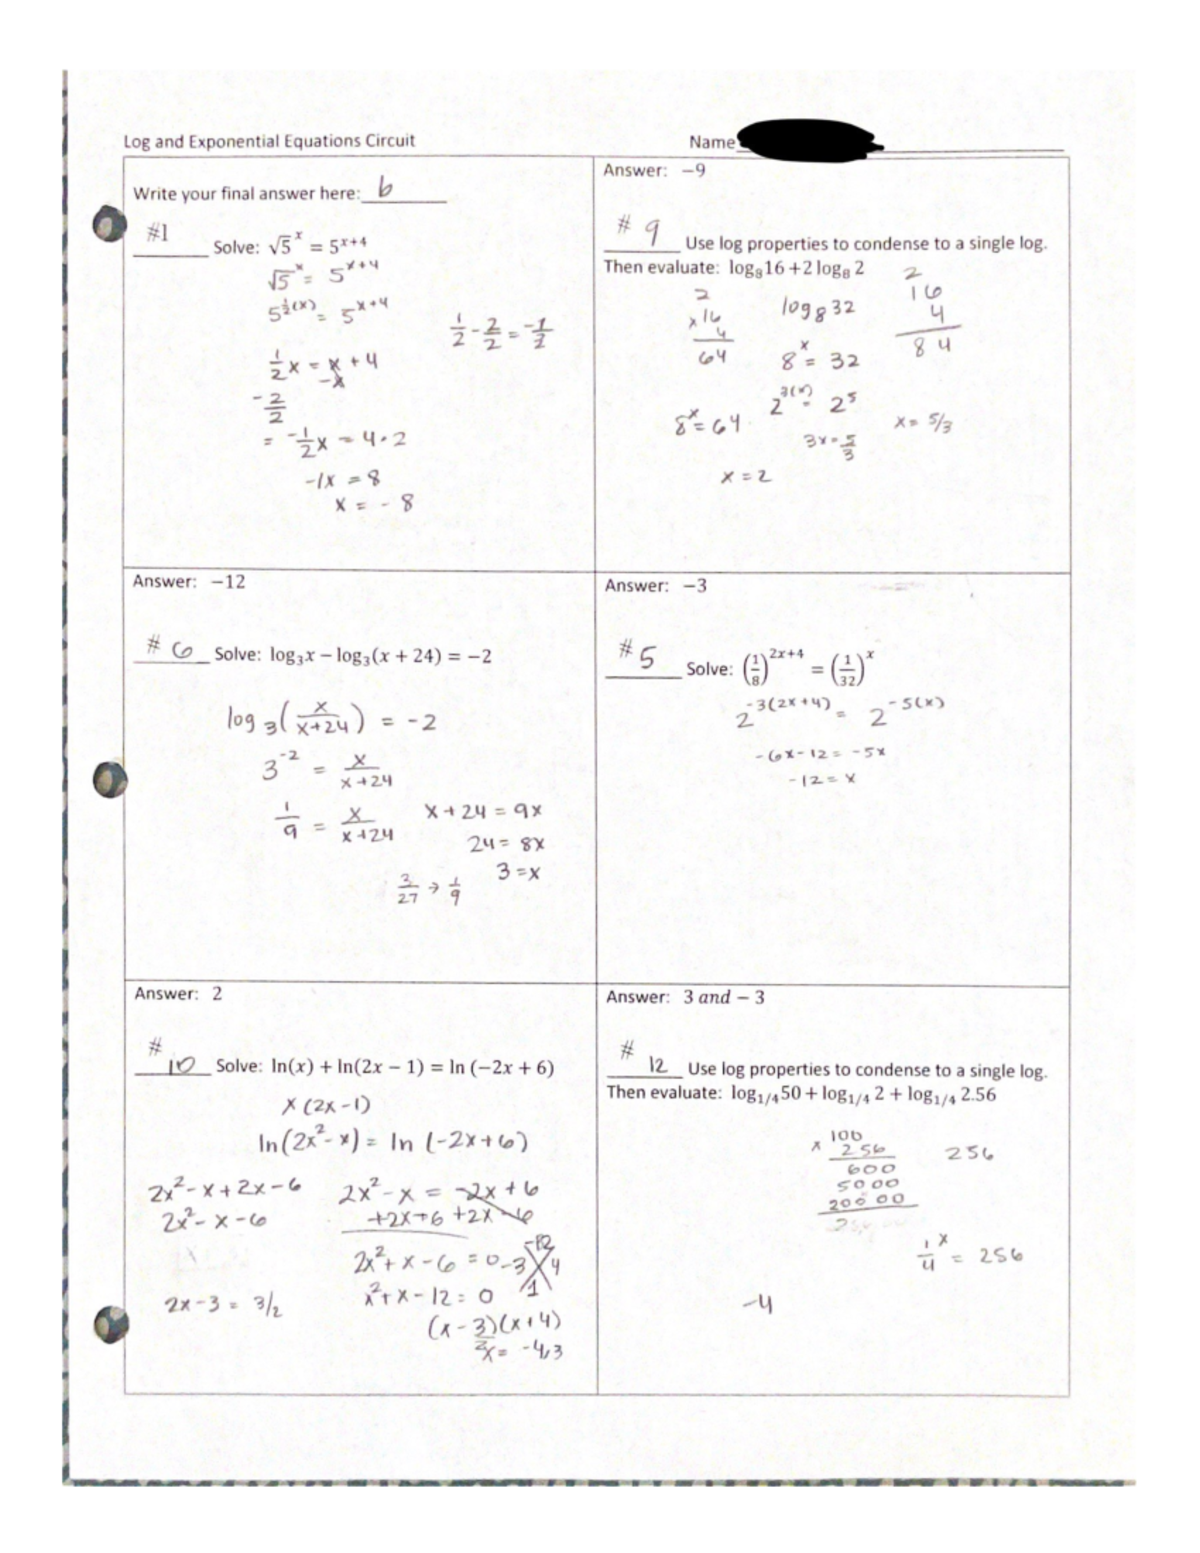 Log and Exponential Equations Circuit
Name
Write your final answer here: 6
#1 Solve: √5^x = 5^{x+4}
√5^x = 5^{x+4}
5^{½(x)} = 5^{x+4}
1/2 - 2/2 = -1/2
1/2 x = x + 4
-x
-2/2
= -1/2 x = 4·2
-1x = 8
x = -8
Answer: −9
# 9 Use log properties to condense to a single log.
Then evaluate: log₈16 + 2 log₈ 2
2
x 16
4
64
log₈ 32
2
16
4
84
8^x = 32
2^{3(x)} = 2^5
8^x = 64
3x = 5
3
x = 5/3
x = 2
Answer: −12
# 6 Solve: log₃x − log₃(x + 24) = −2
log₃(x/(x+24)) = -2
3^{-2} = x/(x+24)
1/9 = x/(x+24)
x + 24 = 9x
24 = 8x
3 = x
3/27 → 1/9
Answer: −3
# 5 Solve: (1/8)^{2x+4} = (1/32)^x
2^{-3(2x+4)} = 2^{-5(x)}
-6x - 12 = -5x
-12 = x
Answer: 2
# 10 Solve: ln(x) + ln(2x − 1) = ln (−2x + 6)
x (2x - 1)
ln(2x² - x) = ln (-2x + 6)
2x² - x + 2x - 6
2x² - x - 6
2x - 3 = 3/2
2x² - x = -2x + 6
+2x +6 +2x -6
2x² + x - 6 = 0
-12
-3 4
1
x² + x - 12 = 0
(x - 3)(x + 4)
2
x = -4, 3
Answer: 3 and − 3
# 12 Use log properties to condense to a single log.
Then evaluate: log_{1/4} 50 + log_{1/4} 2 + log_{1/4} 2.56
100
x 256
600
5000
20000
256
1/4^x = 256
-4